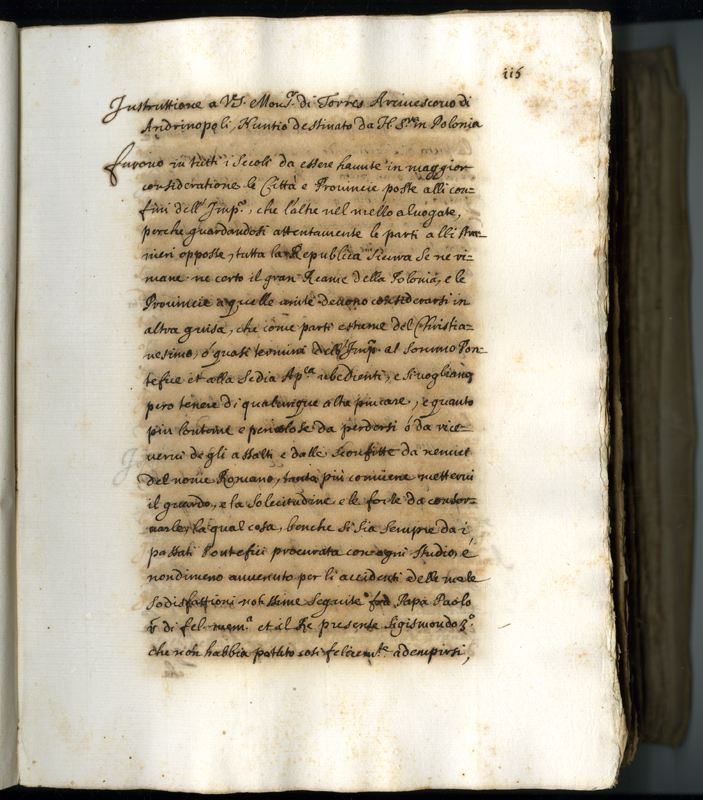 116
Instruttione a V.S. e Mons.r di Torres Arcivescovo di
Andrinopoli, Nuntio destinato da N. S.re in Polonia
Furono in tutti i secoli da essere havute in maggior
consideratione le Città e Provincie poste alli con=
fini dell' Imp.o, che l'altre nel mezzo alvogate,
perche guardandosi attentamente le parti alli stra=
nieri opposte, tutta la Republica sicura se ne ri=
mane ne certo il gran Reame della Polonia, e le
Provincie a quelle unite devono considerarsi in
altra guisa, che come parti estreme del Christia=
nesimo, ó quasi termini dell' Imp.o al sommo Pon=
tefice et alla Sedia Ap.ca ubedienti, e si vogliano
pero tenere di qualunque altra piu care, e quanto
piu lontane e pericolose da perdersi ó da rice=
versi degli assalti e dalle sconfitte da nemici
del nome Romano, tanto piú conviene mettervi
il guardo, e la solecitudine e le forze da conser=
varle, la qual cosa, benche si sia sempre da i
passati Pontefici procurata con ogni studio, é
nondimeno avvenuto per li accidenti delle male
sodisfattioni notissime seguite Papa Paolo
V di fel. mem.a et il Re presente Sigismondo 3.o
che non habbia potuto cosi felicem.te adempirsi,